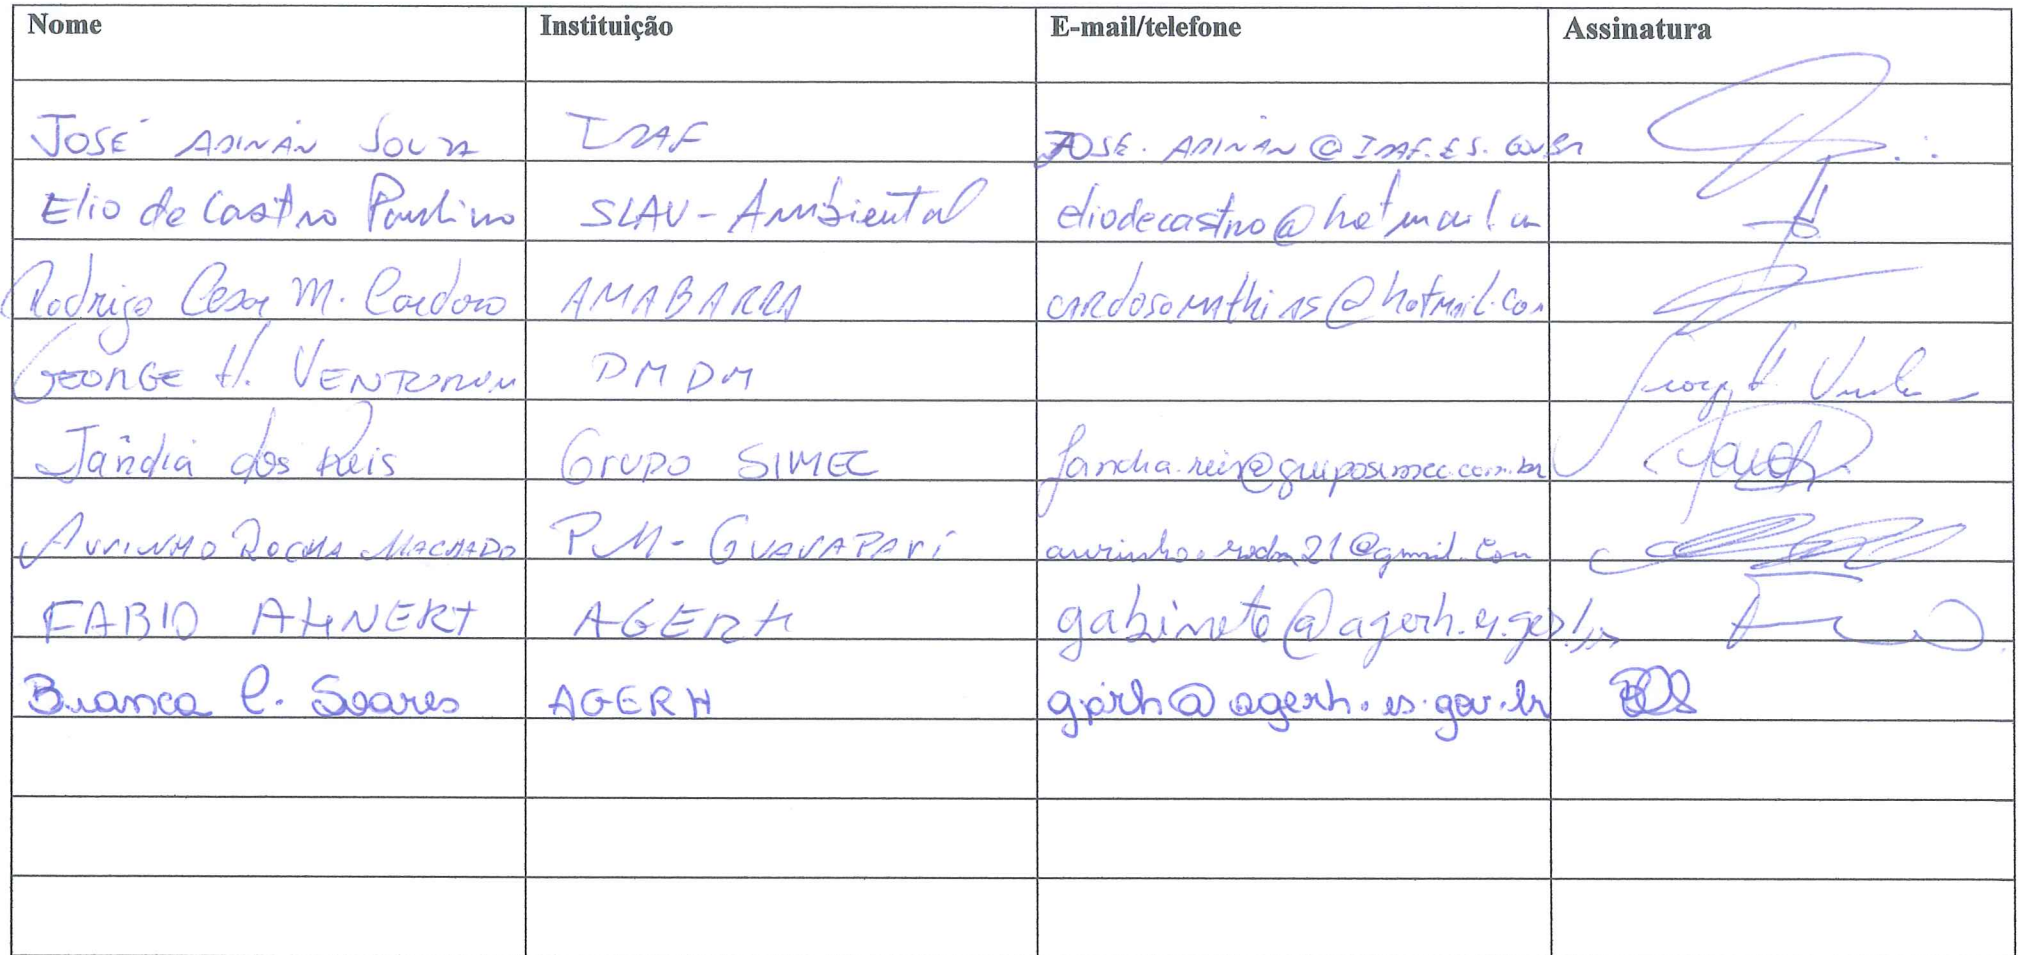 Nome Instituição E-mail/telefone Assinatura
JOSÉ ADINAN SOUZA IDAF JOSE.ADINAN@IDAF.ES.GOV.BR
Elio de Castro Paulino SLAU-Ambiental eliodecastro@hotmail.com
Rodrigo Cesar M. Cardoso AMABARRA cardosomathias@hotmail.com
GEORGE H. VENTORIM DMDM
Jândia dos Reis Grupo SIMEC jandia.reis@gruposimec.com.br
AURINHO ROCHA MACHADO PM-GUARAPARI @gmail.com
FABIO AHNERT AGERH gabinete@agerh.es.gov.br
Bianca C. Soares AGERH @agerh.es.gov.br